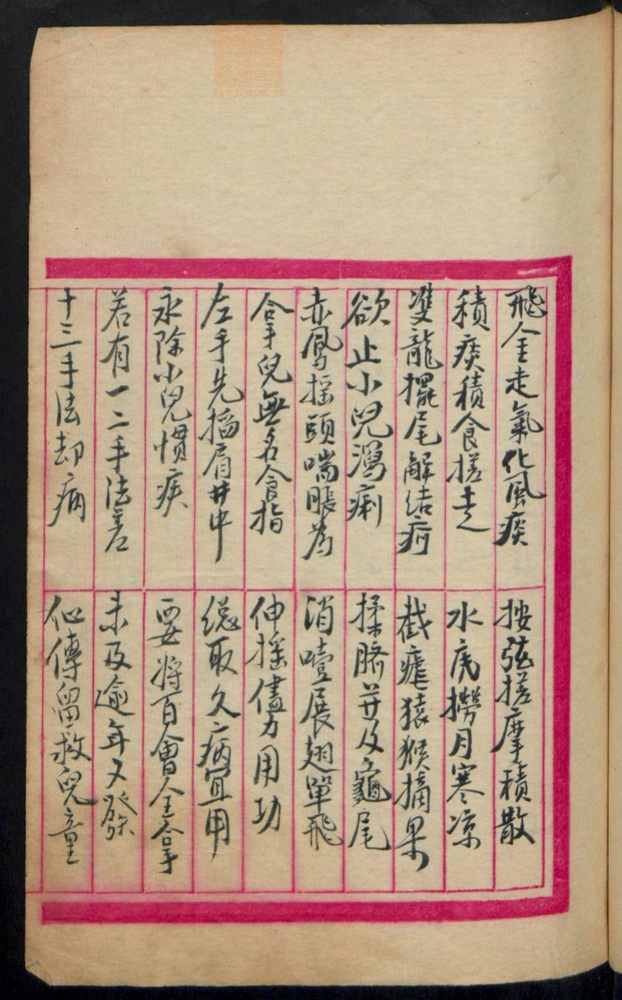 飛金走氣化風痰 按弦搓摩積散
積痰積食搓走 水底撈月寒凉
雙龍擺尾解結疴 截瘧猿猴摘果
欲止小兒瀉痢 揉臍并及龜尾
赤鳳搖頭喘脹為 消噎展翅單飛
合手兒無名食指 伸搖儘力用功
左手先掐肩井中 總取久病宜用
永除小兒慣疾 要將百會全合手
若有一二手法差 未及逾年又發
十三手法却病 仙傳留救兒童